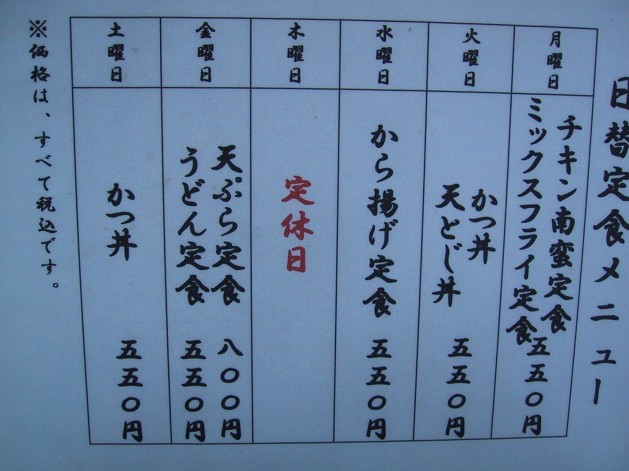 日替定食メニュー
月曜日
チキン南蛮定食
ミックスフライ定食
五五〇円
火曜日
かつ丼
天とじ丼
五五〇円
水曜日
から揚げ定食
五五〇円
木曜日
定休日
金曜日
天ぷら定食 八〇〇円
うどん定食 五五〇円
土曜日
かつ丼
五五〇円
※価格は、すべて税込です。